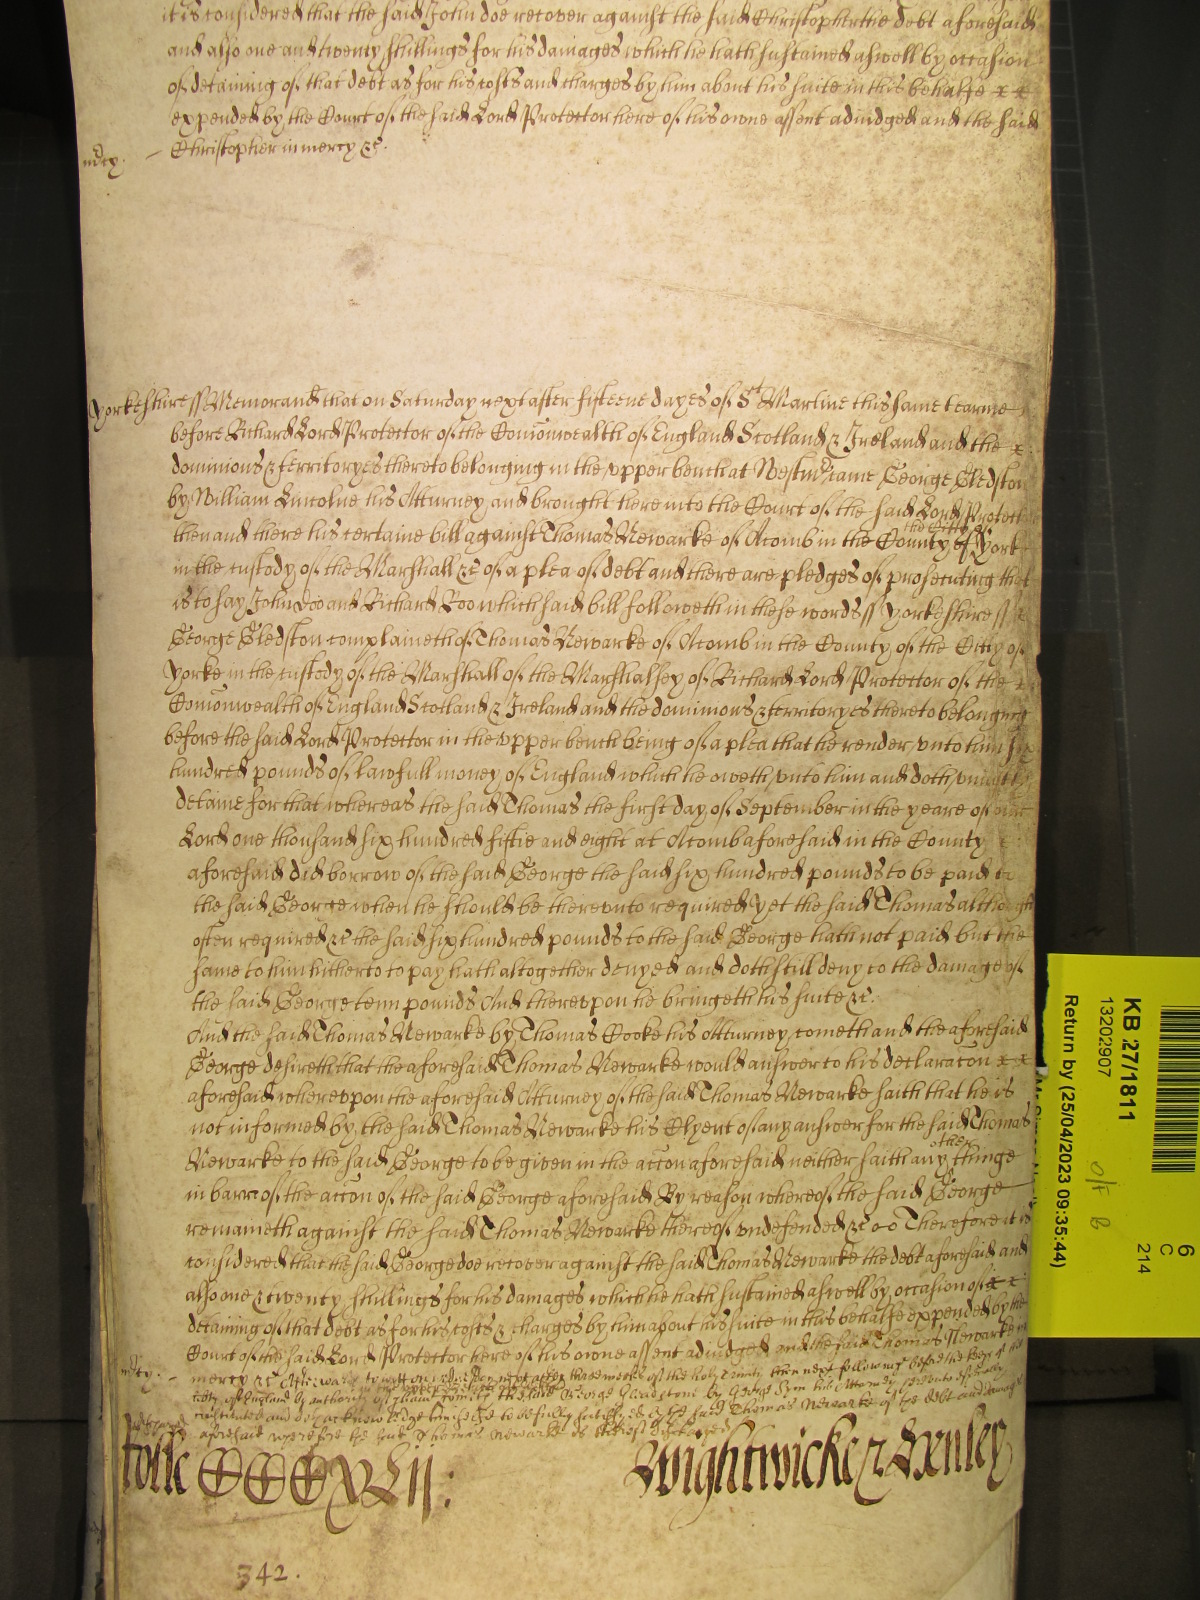 it is considered that the said John doe recover against the said Christopher the debt aforesaid
and also one and twenty shillings for his damages which he hath sustained aswell by occasion
of detaining of that debt as for his costs and charges by him about his suite in this behalfe x x
expended by the Court of the said Lord Protector here of his owne assent adiudged and the said
mcy. — Christopher in mercy &c.
Yorkeshire ss Memorand that on Saturday next after fifteene dayes of St Martine this same tearme
before Richard Lord Protector of the Comonwealth of England Scotland & Ireland and the x
dominions & territoryes thereto belonging in the upper bench at Westmr came George Gledston
by William Lincolne his Atturney and brought here into the Court of the said Lord Protect
then and there his certaine bill against Thomas Newarke of Acomb in the County of the Citty of York
in the custody of the Marshall &c of a plea of debt and there are pledges of prosecuting that
is to say John Doo and Richard Roo which said bill followeth in these words ss Yorkeshire ss
George Gledston complaineth of Thomas Newarke of Acomb in the County of the Citty of
Yorke in the custody of the Marshall of the Marshalsey of Richard Lord Protector of the x
Comonwealth of England Scotland & Ireland and the dominions & territoryes thereto belonging
before the said Lord Protector in the upper bench being of a plea that he render unto him six
hundred pounds of lawfull money of England which he oweth unto him and doth uniustly
detaine for that whereas the said Thomas the first day of September in the yeare of our
Lord one thousand six hundred fiftie and eight at Acomb aforesaid in the County
aforesaid did borrow of the said George the said six hundred pounds to be paid to
the said George when he should be thereunto required yet the said Thomas although
often required &c the said six hundred pounds to the said George hath not paid but the
same to him hitherto to pay hath altogether denyed and doth still deny to the damage of
the said George tenn pounds And thereupon he bringeth his suite &c.
And the said Thomas Newarke by Thomas Cooke his Atturney cometh and the aforesaid
George desireth that the aforesaid Thomas Newarke would answer to his declaracon x x
aforesaid whereupon the aforesaid Atturney of the said Thomas Newarke saith that he is
not informed by the said Thomas Newarke his Clyent of any answer for the said Thomas
Newarke to the said George to be given in the accon aforesaid neither saith any other thinge
in barre of the accon of the said George aforesaid By reason whereof the said George
remaineth against the said Thomas Newarke thereof undefended &c Therefore it is
considered that the said George doe recover against the said Thomas Newarke the debt aforesaid and
also one & twenty shillings for his damages which he hath sustained aswell by occasion of x x
detaining of that debt as for his costs & charges by him about his suite in this behalfe expended by the
Court of the said Lord Protector here of his owne assent adiudged and the said Thomas Newarke in
mcy. — mercy &c Afterwards to witt on next after three weekes of the holy Trinity then next following before the
of England by authority of Parliamt cometh the said George Gledstone by his Attorney
and doth acknowledge himselfe to be fully satisfied by the said Thomas Newarke of the debt and damages
aforesaid wherefore the said Thomas Newarke is thereof discharged
rotlo CCCXLII: Wightwicke & Oxnley
342.
KB 27/1811
13202907
Return by (25/04/2023 09:35:44)
6
C
214